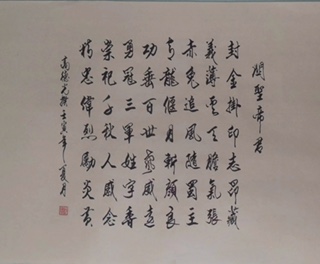 關聖帝君
封金掛印志昂藏
義薄雲天膽氣張
赤兔追風隨蜀主
青龍偃月斬顏良
功垂百世威遠
勇冠三軍姓字香
崇祀千秋人感念
精忠偉烈勵炎黃
高德光撰壬寅年夏月